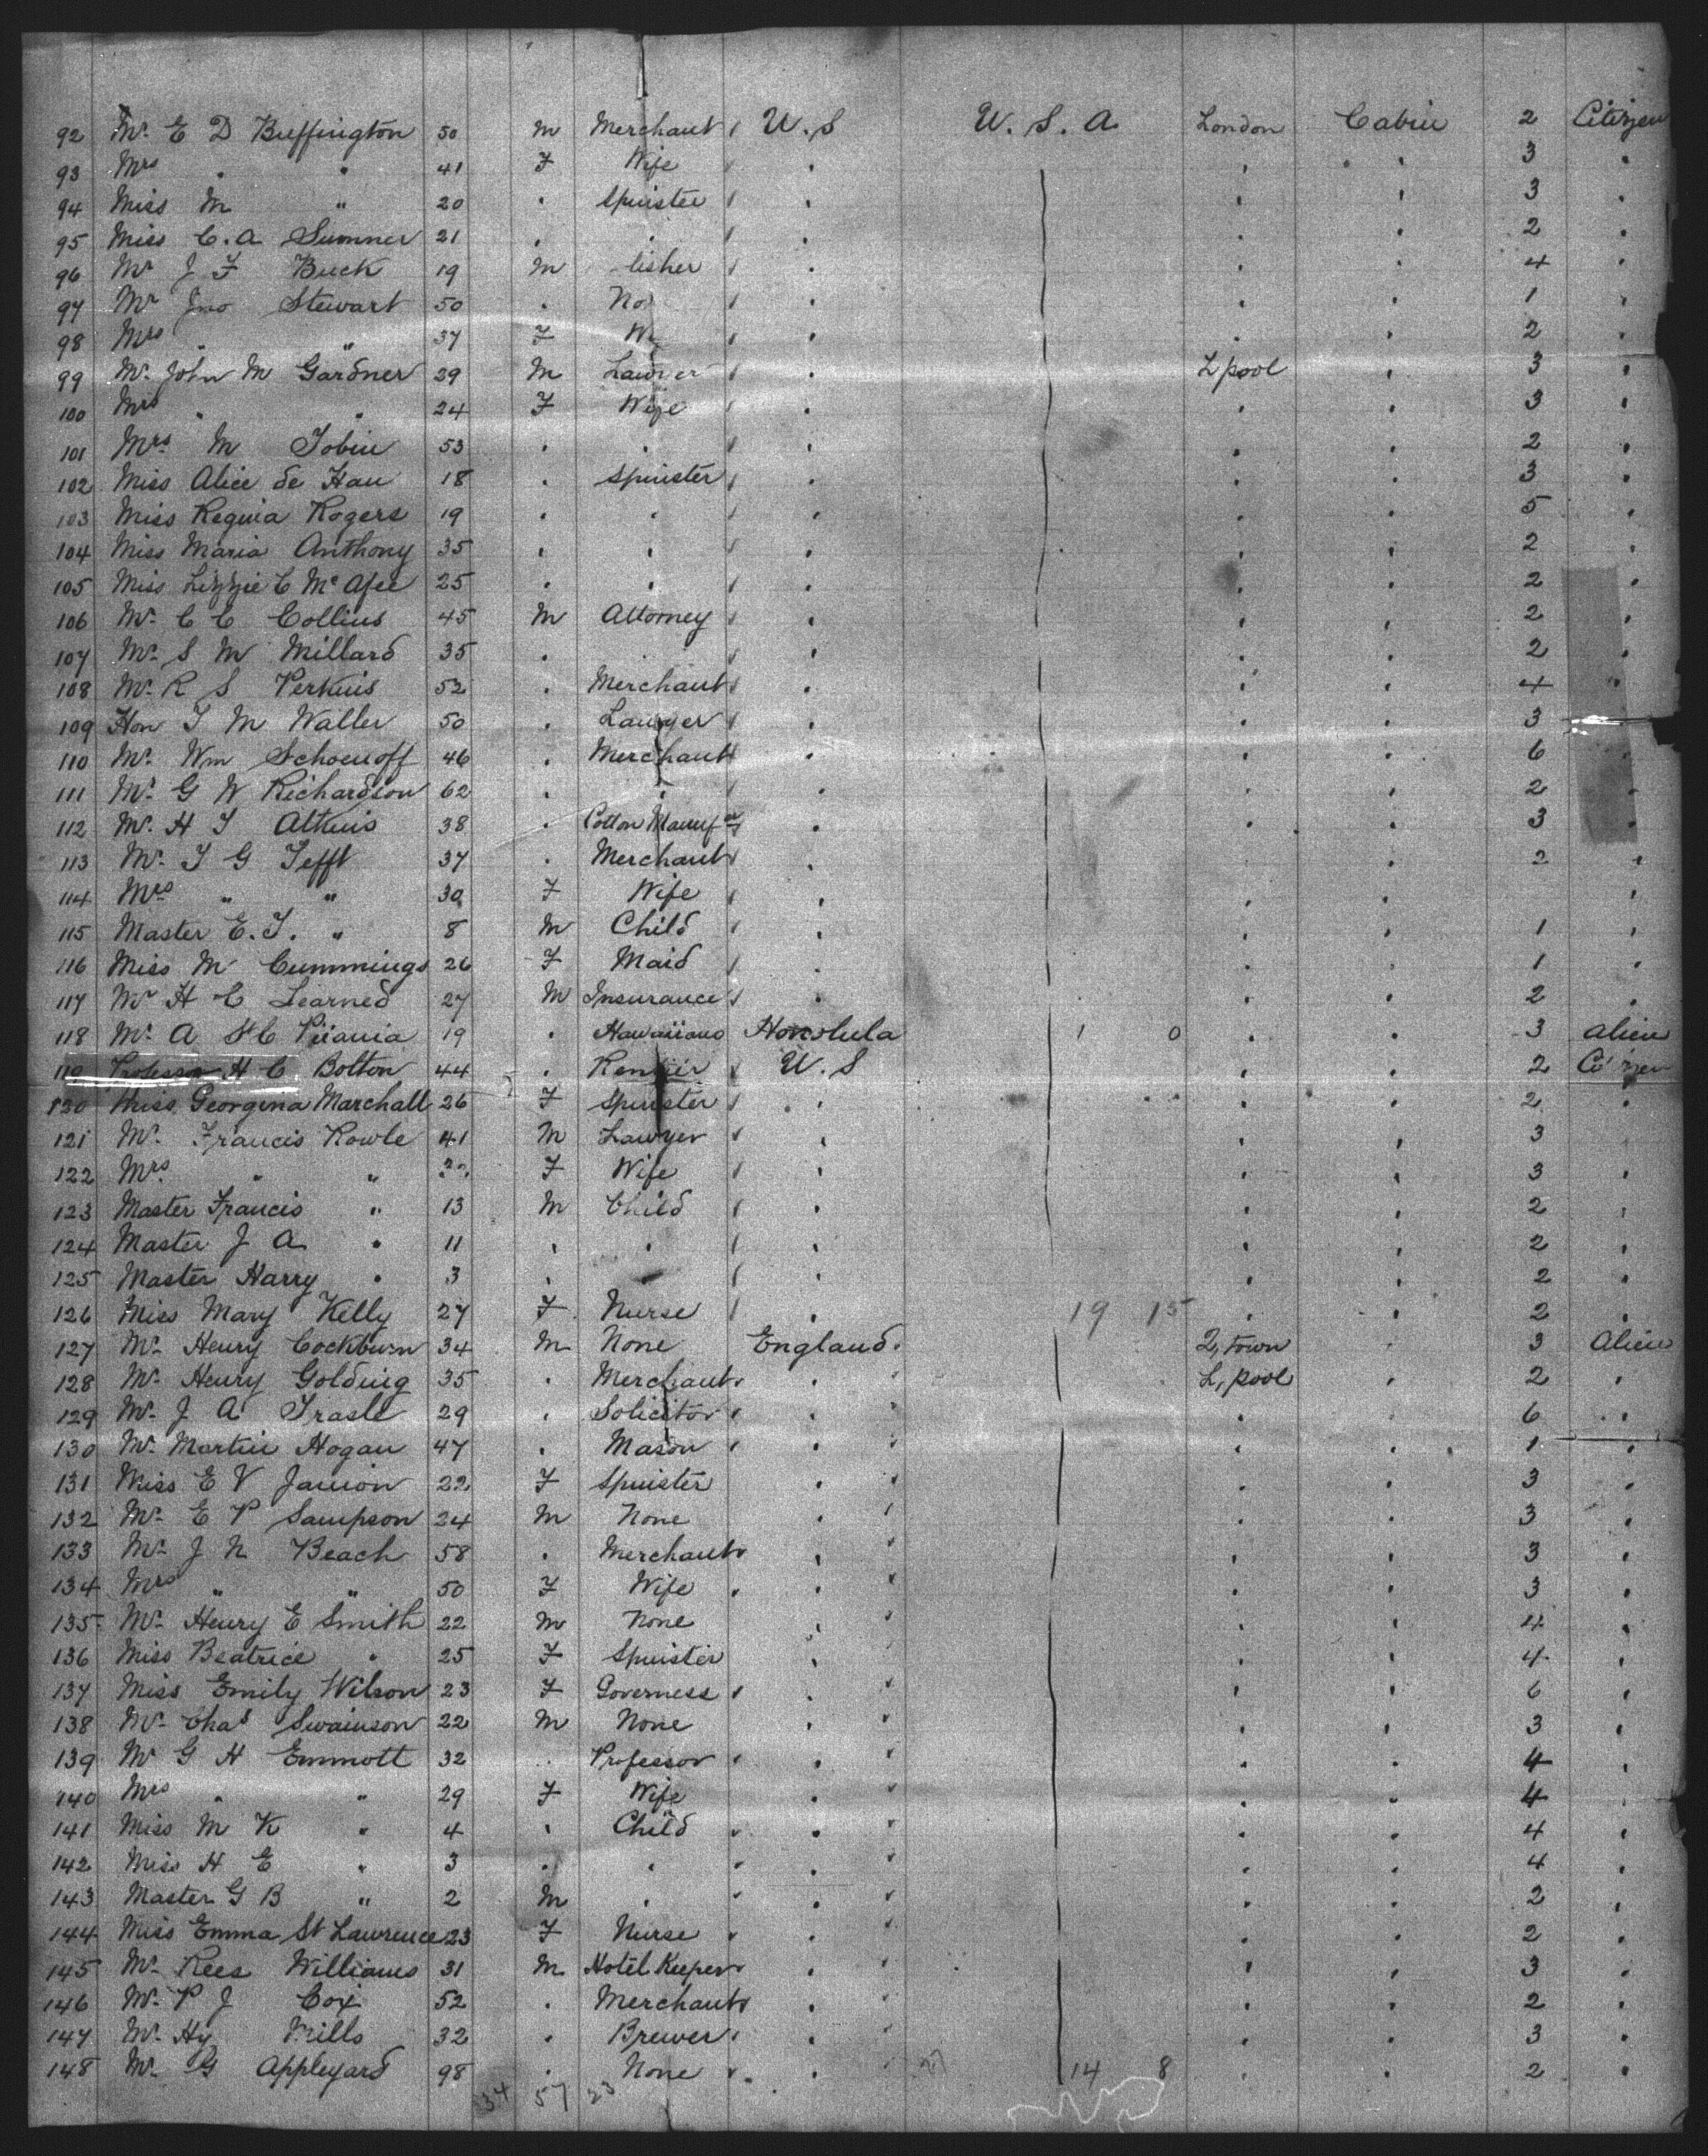 92 Mr. E D Buffington 50 M Merchant U.S U.S.A. London Cabin 2 Citizen
93 Mrs " " 41 F Wife " " " 3 "
94 Miss M " 20 " Spinster " " " 3 "
95 Miss C. A Sumner 21 " " " " " 2 "
96 Mr J F Buck 19 M " " " 4 "
97 Mr Jno Stewart 50 " " " " 1 "
98 Mrs " " 37 F " " " 2 "
99 Mr. John M Gardner 29 M Lawyer " L'pool " 3 "
100 Mrs " " 24 F Wife " " " 3 "
101 Mrs. M Tobin 53 " " " " " 2 "
102 Miss Alice de Hau 18 " Spinster " " " 3 "
103 Miss Regina Rogers 19 " " " " " 5 "
104 Miss Maria Anthony 35 " " " " " 2 "
105 Miss Lizzie C McAfee 25 " " " " " 2 "
106 Mr. C C Collins 45 M Attorney " " " 2 "
107 Mr. S M Millard 35 " " " " " 2 "
108 Mr. R S Perkins 52 " Merchant " " " 4 "
109 Hon T M Waller 50 " Lawyer " " " 3
110 Mr. Wm Schoenoff 46 " Merchant " " " 6 "
111 Mr. G W Richardson 62 " " " " " 2 "
112 Mr. H T Atkins 38 " Cotton Manufer " " " 3 "
113 Mr. T G Tefft 37 " Merchant " " " 2 "
114 Mrs " " 30 F Wife " " " "
115 Master E. T. " 8 M Child " " " 1 "
116 Miss M Cummings 26 F Maid " " " 1 "
117 Mr H C Learned 27 M Insurance " " " 2 "
118 Mr. A St C Piiania 19 " Hawaiiano Honolula 1 0 " " 3 Alien
119 Professor H C Bolton 44 " U.S " " 2
120 Miss Georgina Marchall 26 F Spinster " " " 2 "
121 Mr. Francis Rowle 41 M Lawyer " " " 3
122 Mrs. " " F Wife " " " 3 "
123 Master Francis " 13 M Child " " " 2 "
124 Master J A " 11 " " " " " 2 "
125 Master Harry " 3 " " " " " 2 "
126 Miss Mary Kelly 27 F Nurse " 19 15 " " 2 "
127 Mr. Henry Cockburn 34 M None England. Q,town " 3 Alien
128 Mr. Henry Golding 35 " Merchant " " L,pool " 2 "
129 Mr. J A Trasle 29 " Solicitor " " " " 6 "
130 Mr. Martin Hogan 47 " Mason " " " " 1 "
131 Miss E V Janion 22 F Spinster " " " " 3 "
132 Mr. E P Sampson 24 M None " " " " 3 "
133 Mr. J N Beach 58 " Merchant " " " " 3 "
134 Mrs " " 50 F Wife " " " " 3 "
135 Mr. Henry E Smith 22 M None " " " " 4 "
136 Miss Beatrice " 25 F Spinster " " " " 4 "
137 Miss Emily Wilson 23 F Governess " " " " 6 "
138 Mr. Chas Swainson 22 M None " " " " 3 "
139 Mr G H Emmott 32 " Professor " " " " 4 "
140 Mrs " " 29 F Wife " " " " 4 "
141 Miss M K " 4 " Child " " " " 4 "
142 Miss H E " 3 " " " " " " 4 "
143 Master G B " 2 M " " " " " 2 "
144 Miss Emma St Lawrence 23 F Nurse " " " " 2 "
145 Mr. Rees Williams 31 M Hotel Keeper " " " " 3 "
146 Mr. P J Cox 52 " Merchant " " " " 2 "
147 Mr. Hy Mills 32 " Brewer " " " " 3 "
148 Mr. G Appleyard 98 " None " " 14 8 " " 2 "
34 57 23